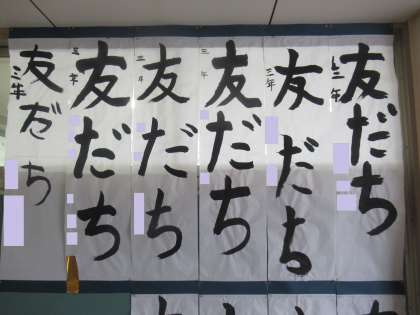 友だち
三年
友だち
三年
友だち
三年
友だち
三年
友だち
三年
友だち
三年